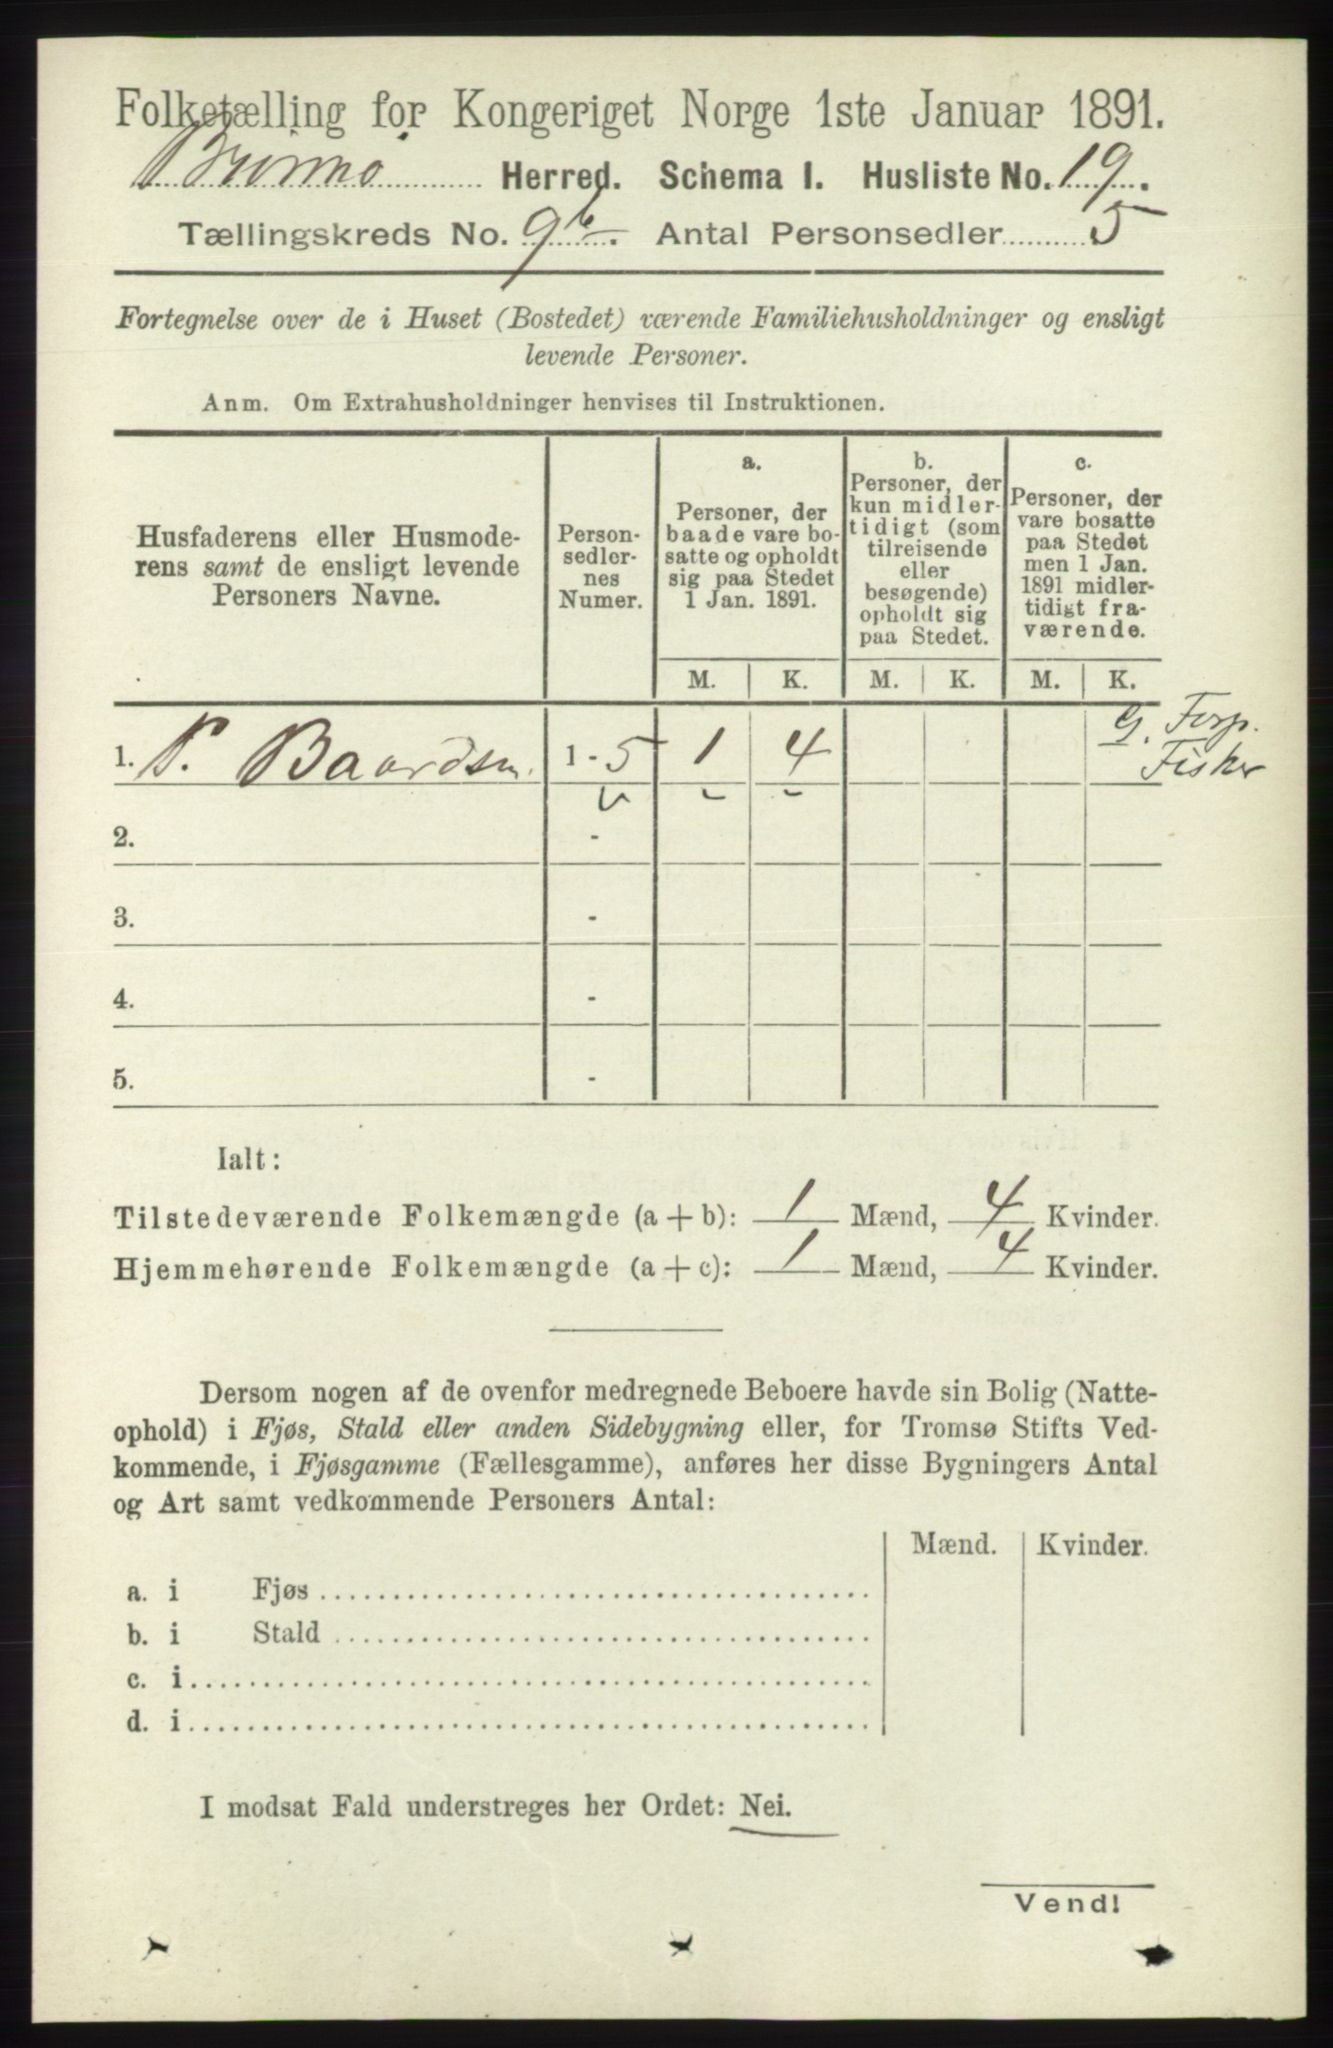 Folketælling for Kongeriget Norge 1ste Januar 1891.
Brunnø Herred. Schema I. Husliste No. 19.
Tællingskreds No. 9b. Antal Personsedler 5
Fortegnelse over de i Huset (Bostedet) værende Familiehusholdninger og ensligt
levende Personer.
Anm. Om Extrahusholdninger henvises til Instruktionen.
Husfaderens eller Husmode-
rens samt de ensligt levende
Personers Navne.
Person-
sedler-
nes
Numer.
a.
Personer, der
baade vare bo-
satte og opholdt
sig paa Stedet
1 Jan. 1891.
b.
Personer, der
kun midler-
tidigt (som
tilreisende
eller
besøgende)
opholdt sig
paa Stedet.
c.
Personer, der
vare bosatte
paa Stedet
men 1 Jan.
1891 midler-
tidigt fra-
værende.
M. K. M. K. M. K.
1. P. Baardsen. 1 - 5 1 4 G. Forp.
Fisker
2. -
3. -
4. -
5. -
Ialt:
Tilstedeværende Folkemængde (a + b): 1 Mænd, 4 Kvinder.
Hjemmehørende Folkemængde (a + c): 1 Mænd, 4 Kvinder.
Dersom nogen af de ovenfor medregnede Beboere havde sin Bolig (Natte-
ophold) i Fjøs, Stald eller anden Sidebygning eller, for Tromsø Stifts Ved-
kommende, i Fjøsgamme (Fællesgamme), anføres her disse Bygningers Antal
og Art samt vedkommende Personers Antal:
Mænd. Kvinder.
a. i Fjøs
b. i Stald
c. i
d. i
I modsat Fald understreges her Ordet: Nei.
Vend!